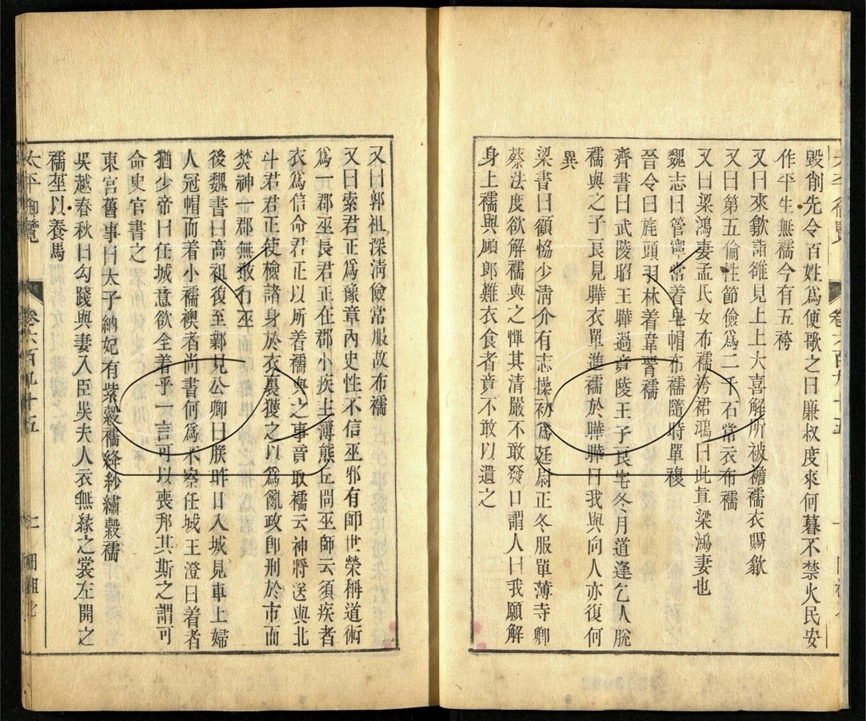 毀削先令百姓為便歌之曰廉叔度來何暮不禁火民安
作平生無襦今有五袴
又曰來歙詣雒見上上大喜解所被襜襦衣賜歙
又曰第五倫性節儉為二千石常衣布襦
又曰梁鴻妻孟氏女布襦袴裙鴻曰此真梁鴻妻也
魏志曰管寧常着皂帽布襦隨時單複
晉令曰旄頭羽林着韋腎襦
齊書曰武陵昭王曄過竟陵王子良宅冬月道逢乞人脫
襦與之子良見曄衣單進襦於曄曄曰我與向人亦復何
異
梁書曰顧協少清介有志操初為廷尉正冬服單薄寺卿
蔡法度欲解襦與之憚其清嚴不敢發口謂人曰我願解
身上襦與顧郎難衣食者竟不敢以遺之
又曰郭祖深清儉常服故布襦
又曰索君正為豫章內史性不信巫邪有師世榮稱道術
為一郡巫長君正在郡小疾主簿熊丘問巫師云須疾者
衣為信命君正以所着襦與之事竟取襦云神將送與北
斗君君正使檢諸身於衣裏獲之以為亂政即刑於市而
焚神一郡無敢行巫
後魏書曰高祖復至鄴見公卿曰朕昨日入城見車上婦
人冠帽而着小襦襖者尚書何為不察任城王澄曰着者
猶少帝曰任城意欲全着乎一言可以喪邦其斯之謂可
命史官書之
東宮舊事曰太子納妃有紫縠襦絳紗繡縠襦
吳越春秋曰勾踐與妻入臣吳夫人衣無緣之裳左開之
襦莝以養馬
太平御覽 卷六百九十五 二